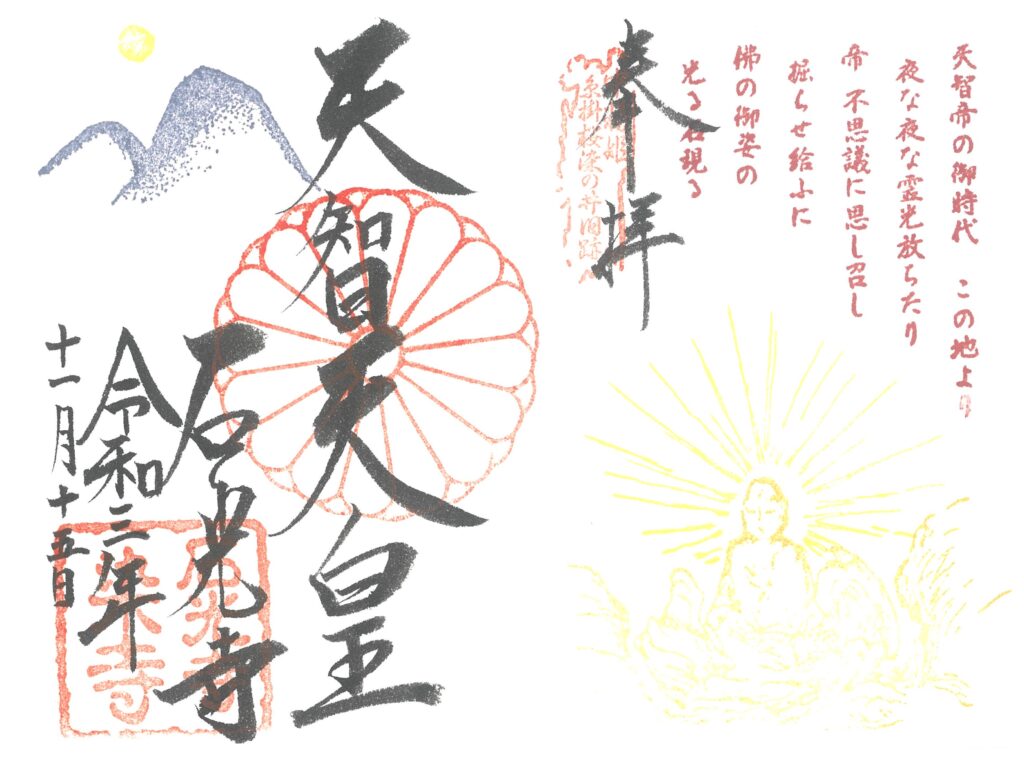 天智帝の御時代 この地より
夜な夜な霊光放ちたり
帝 不思議に思し召し
掘らせ給ふに
佛の御姿の
光る石現る
奉拝
姫
糸掛桜染の井旧跡
天智天皇
石光寺
令和三年
十一月十五日
石光寺
染寺